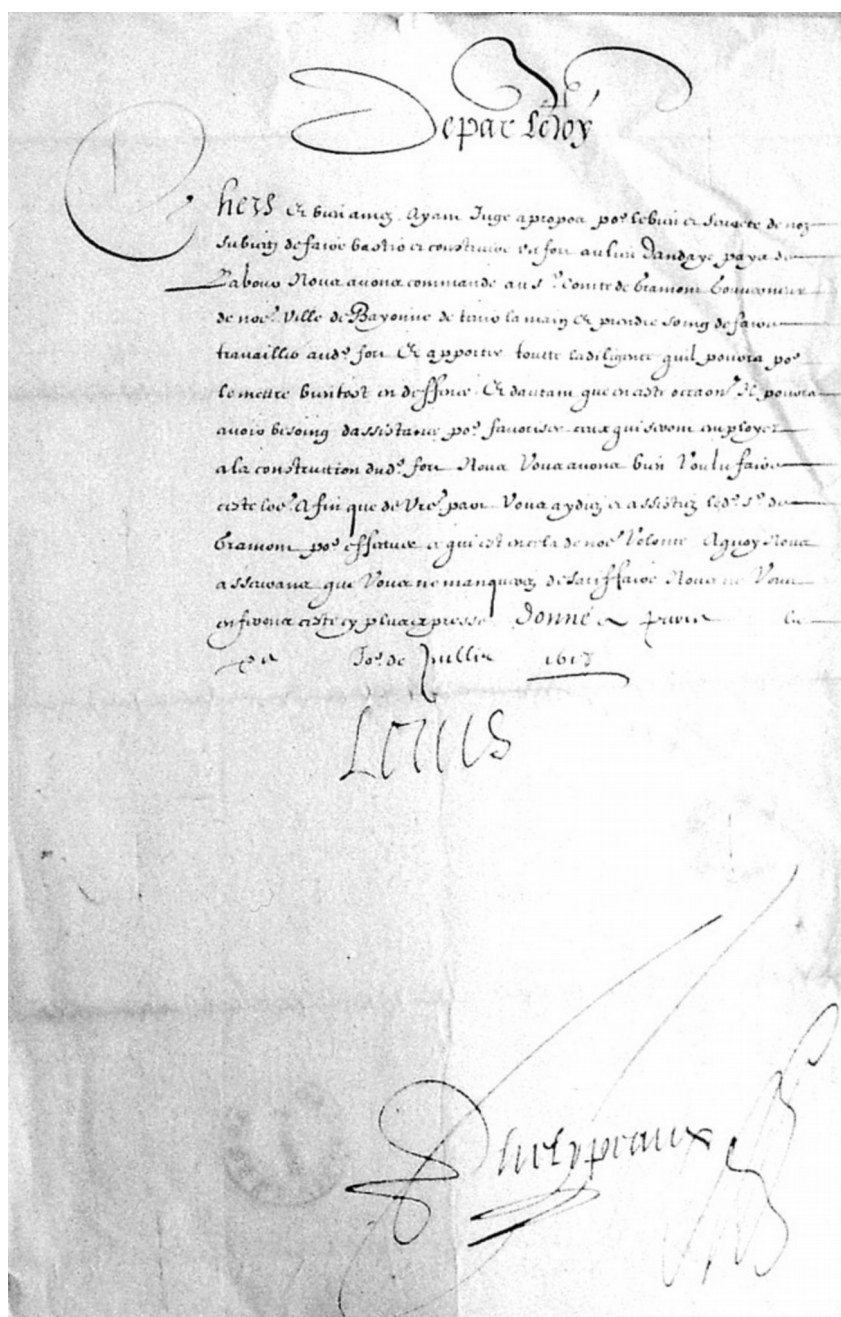 De par le Roy
Chers et bien amez Ayant Jugé a propos por le bien et seureté de noz
subiectz de faire bastir et construire un fort au lieu dandaye pays de
Labour Nous avons commandé au sr. Comte de Gramont Gouverneur
de noe. Ville de Bayonne de tenir la main et prendre soing de faire
travailler aud. fort et apporter toutte la diligence quil pourra por
le mettre bientost en deffence Et dautant que en ceste occaon. Il pourra
avoir besoing dassistance por favoriser ceux qui seront employez
a la construction dud. fort Nous Vous avons bien Voulu faire
ceste lre. Afin que de Vre. part Vous aydiez et assistiez led. sr. de
Gramont por effectuer ce qui est en cela de noe. Volonté Aquoy Nous
asseurans que Vous ne manquerez de satisfaire Nous ne Vous
en ferons ceste cy plus expresse donné a paris le
Jor. de Juillet
Louis
Phelypeaux